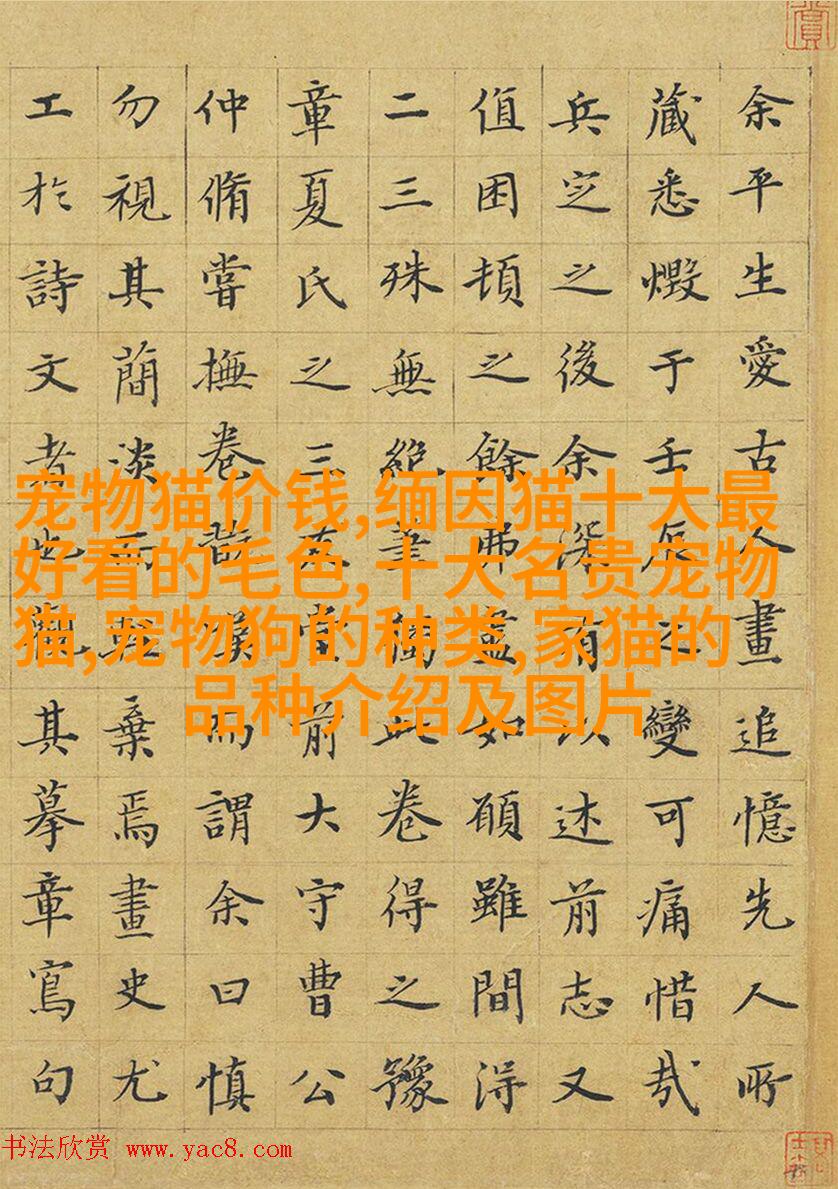 余平生愛古人畫追憶先人所
藏悉燬于壬辰之變可痛惜哉
兵定之後余深有以述前志又
值困頓之餘弗盡如願雖間得
二三殊無絶筆獨此卷得之豫
章夏氏之三友堂前大守曹公
仲脩嘗撫卷而謂余曰慎
勿視其簡淡而輕棄焉畫史尤
工於詩文者也觀其摹章寫句
宠物猫价钱,缅因猫十大最
好看的毛色,十大名贵宠物
猫,宠物狗的种类,家猫的
品种介绍及图片
书法欣赏 www.yac8.com